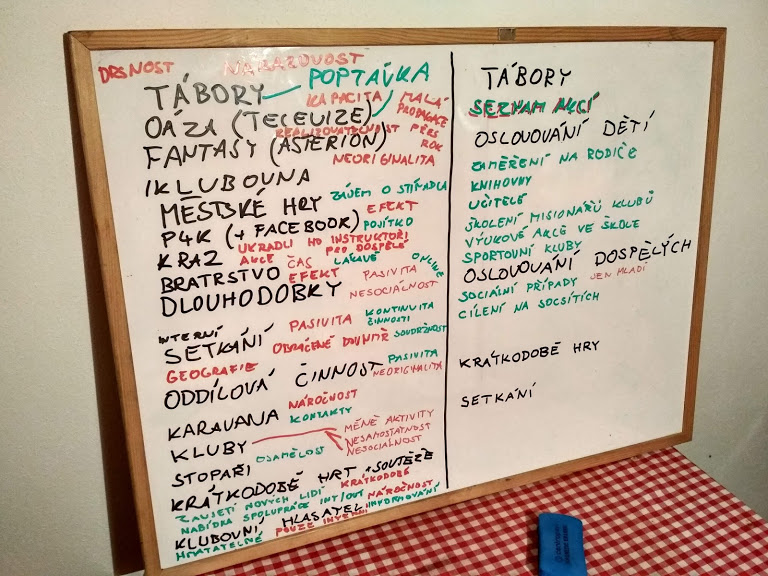 DRSNOST NÁRAZOVOST
TÁBORY — POPTÁVKA
KAPACITA MALÁ PROPAGACE
OÁZA (TELEVIZE)
REALIZOVATELNOST PŮL ROK
FANTASY (ASTERION)
NEORIGINALITA
IKLUBOVNA
ZÁJEM O STÍNADLA
MĚSTSKÉ HRY EFEKT
P4K (+ FACEBOOK) POJÍTKO
UKRADLI HO INSTRUKTOŘI
KRAZ AKCE PRO DOSPĚLÉ
ČAS LÁKAVÉ ONLINE
BRATRSTVO EFEKT PASIVITA
DLOUHODOBKY NESOCIÁLNOST
INTERNÍ PASIVITA KONTINUITA ČINNOSTI
SETKÁNÍ OBRÁCENÉ SOUDRŽNOST
GEOGRAFIE PASIVITA
ODDÍLOVÁ ČINNOST NEORIGINALITA
NÁROČNOST
KARAVANA KONTAKTY
KLUBY MÉNĚ AKTIVITY
NESAMOSTATNOST
OSAMĚLOST NESOCIÁLNOST
STOPAŘI
KRÁTKODOBÉ HRY + SOUTĚŽE
ZAUJETÍ NOVÝCH LIDÍ KRÁTKODOBÉ
NABÍDKA SPOLUPRÁCE INT/OUT NÁROČNOST
KLUBOVNÍ HLASATEL INFORMOVÁNÍ
HMATATELNÉ POUZE INTERNÍ
TÁBORY
SEZNAM AKCÍ
OSLOVOVÁNÍ DĚTÍ
ZAMĚŘENÍ NA RODIČE
KNIHOVNY
UČITELÉ
ŠKOLENÍ MISIONÁŘŮ KLUBŮ
VÝUKOVÉ AKCE VE ŠKOLE
SPORTOVNÍ KLUBY
OSLOVOVÁNÍ DOSPĚLÝCH
SOCIÁLNÍ PŘÍPADY JEN MLADÍ
CÍLENÍ NA SOCSÍTÍCH
KRÁTKODOBÉ HRY
SETKÁNÍ